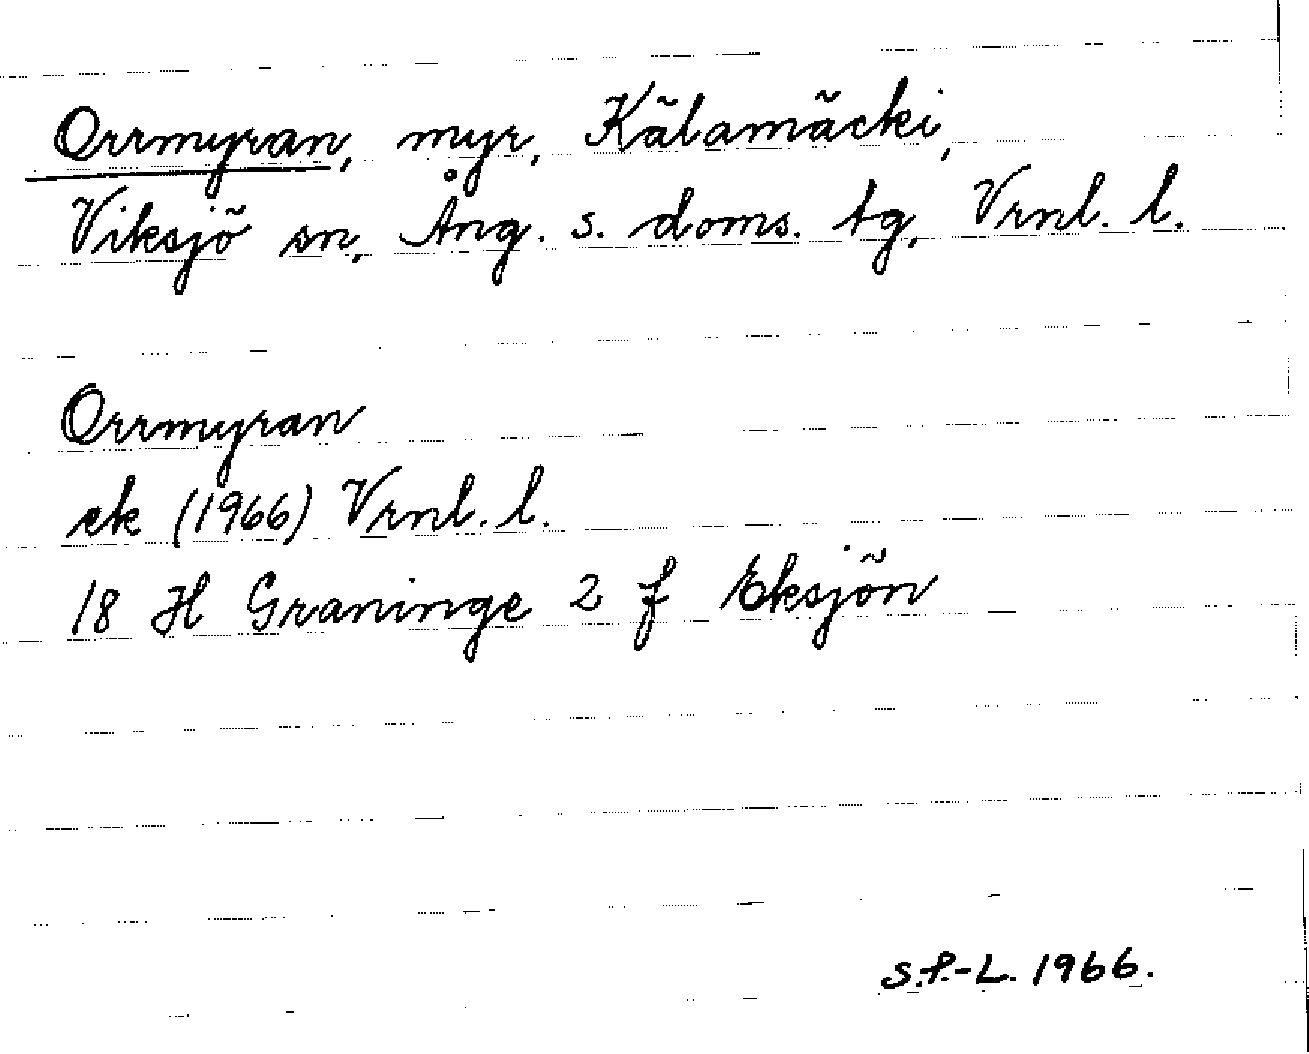 Orrmyran, myr, Kälamäcki,
Viksjö sn, Ång. s. doms. tg, Vrnl. l.
Orrmyran
ek (1966) Vrnl. l.
18 H Graninge 2 f Eksjön
S.P-L. 1966.